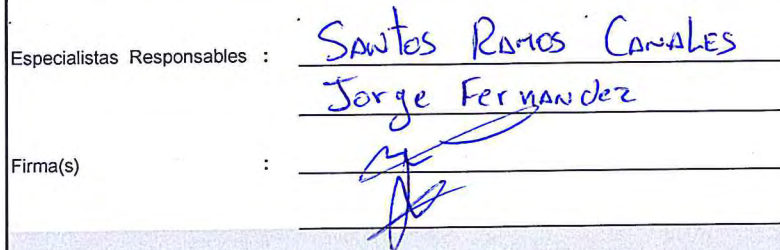 Especialistas Responsables : Santos Ramos Canales
Jorge Fernandez
Firma(s) :